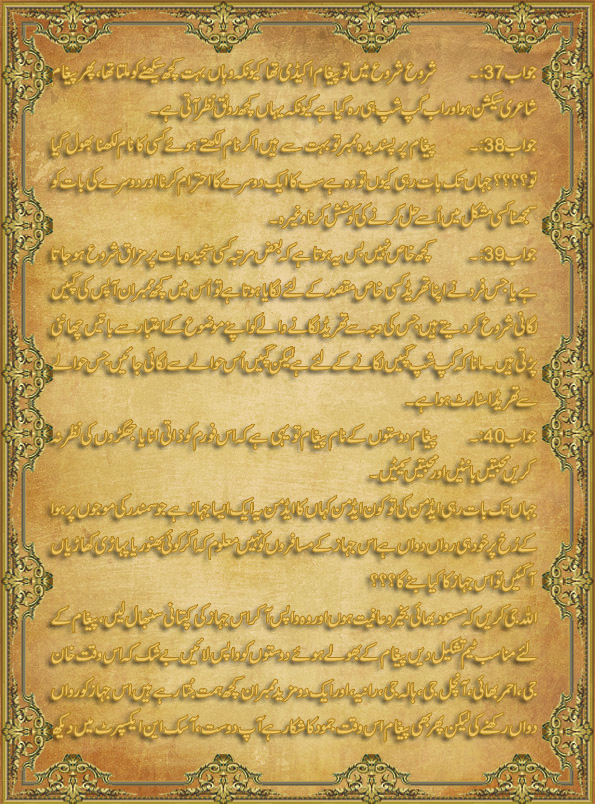 جواب37:۔ شروع شروع میں تو پیغام اکیڈمی تھا کیونکہ وہاں بہت کچھ سیکھنے کو ملتا تھا، پھر پیغام
شاعری سیکشن ہوا اور اب گپ شپ ہی رہ گیا ہے کیونکہ یہاں کچھ رونق نظر آتی ہے۔
جواب38:۔ پیغام پر پسندیدہ ممبر تو بہت سے ہیں اگر نام لکھتے ہوئے کسی کا نام لکھنا بھول گیا
تو؟؟؟؟ جہاں تک بات رہی کیوں تو وہ ہے سب کا ایک دوسرے کا احترام کرنا اور دوسرے کی بات کو
سمجھنا کسی مشکل میں اُسے حل کرنے کی کوشش کرنا وغیرہ۔
جواب39:۔ کچھ خاص نہیں بس یہ ہوتا ہے کہ بعض مرتبہ کسی سنجیدہ بات پر مزاق شروع ہو جاتا
ہے یا جس فرد نے اپنا تھریڈ کسی خاص مقصد کے لئے لگایا ہوتا ہے تو اُس میں کچھ ممبران آپس کی گپیں
لگانی شروع کر دیتے ہیں جس کی وجہ سے تھریڈ لگانے والے کو اپنے موضوع کے اعتبار سے باتیں چھانٹنی
پڑتی ہیں۔ مانا کہ گپ شپ گپیں لگانے کے لئے ہے لیکن گپیں اُس حوالے سے لگائی جائیں جس حوالے
سے تھریڈ اسٹارٹ ہوا ہے۔
جواب40:۔ پیغام دوستوں کے نام پیغام تو یہی ہے کہ اس فورم کو ذاتی انا یا جھگڑوں کی نظر نہ
کریں محبتیں بانٹیں اور محبتیں سمیٹیں۔
جہاں تک بات رہی ایڈمن کی تو کون ایڈمن کہاں کا ایڈمن یہ ایک ایسا جہاز ہے جو سمندر کی موجوں پر ہوا
کے رُخ پر خود ہی رواں دواں ہے اس جہاز کے مسافروں کو نہیں معلوم کہ اگر کوئی بھنور یا پہاڑی کھاڑیاں
آ گئیں تو اس جہاز کا کیا بنے گا؟؟؟
اللہ جی کریں کہ مسعود بھائی بخیر و عافیت ہوں اور وہ واپس آ کر اس جہاز کی کپتانی سنبھال لیں، پیغام کے
لئے مناسب ٹیم تشکیل دیں پیغام کے بھولے ہوئے دوستوں کو واپس لائیں بے شک کہ اس وقت خان
جی، احمر بھائی، آنچل جی، ہالہ جی، رانیہ، اور ایک دو مزید ممبران کچھ ہمت بندھا رہے ہیں اس جہاز کو رواں
دواں رکھنے کی لیکن پھر بھی پیغام اس وقت جمود کا شکار ہے آپ دوست، آسک این ایکسپرٹ میں دیکھ